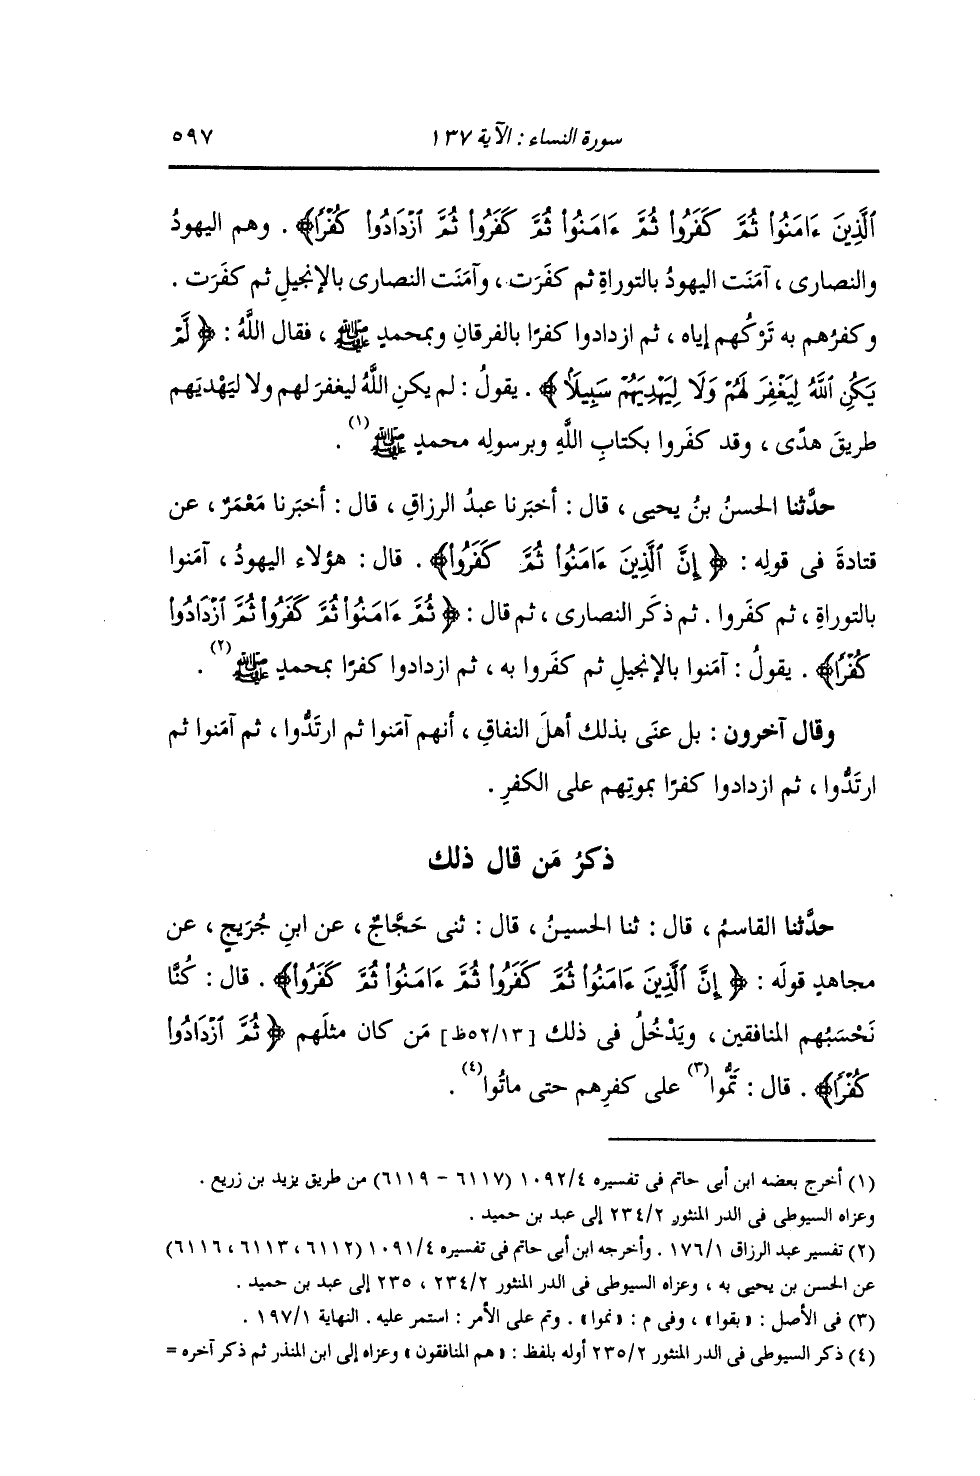 سورة النساء : الآية ١٣٧ ٥٩٧
ٱلَّذِينَ ءَامَنُواْ ثُمَّ كَفَرُواْ ثُمَّ ءَامَنُواْ ثُمَّ كَفَرُواْ ثُمَّ ٱزْدَادُواْ كُفْرًا﴾ . وهم اليهودُ
والنصارى ، آمَنَت اليهودُ بالتوراةِ ثم كفَرت ، وآمَنَت النصارى بالإنجيلِ ثم كفَرت .
وكفرُهم به تَرْكُهم إياه ، ثم ازدادوا كفرًا بالفرقانِ وبمحمدٍ ﷺ ، فقال اللَّهُ : ﴿ لَّمْ
يَكُنِ ٱللَّهُ لِيَغْفِرَ لَهُمْ وَلَا لِيَهْدِيَهُمْ سَبِيلًا ﴾ . يقولُ : لم يكنِ اللَّهُ ليغفرَ لهم ولا ليَهْديَهم
طريقَ هدًى ، وقد كفَروا بكتابِ اللَّهِ وبرسولِه محمدٍ ﷺ(١) .
حدَّثنا الحسنُ بنُ يحيى ، قال : أخبَرنا عبدُ الرزاقِ ، قال : أخبَرنا مَعْمَرٌ ، عن
قتادةَ فى قولِه : ﴿ إِنَّ ٱلَّذِينَ ءَامَنُواْ ثُمَّ كَفَرُواْ﴾ . قال : هؤلاء اليهودُ ، آمَنوا
بالتوراةِ ، ثم كفَروا . ثم ذكَر النصارى ، ثم قال : ﴿ ثُمَّ ءَامَنُواْ ثُمَّ كَفَرُواْ ثُمَّ ٱزْدَادُواْ
كُفْرًا﴾ . يقولُ : آمَنوا بالإنجيلِ ثم كفَروا به ، ثم ازدادوا كفرًا بمحمدٍ ﷺ(٢) .
وقال آخرون : بل عنَى بذلك أهلَ النفاقِ ، أنهم آمَنوا ثم ارتَدُّوا ، ثم آمَنوا ثم
ارتَدُّوا ، ثم ازدادوا كفرًا بموتِهم على الكفرِ .
ذكرُ مَن قال ذلك
حدَّثنا القاسمُ ، قال : ثنا الحسينُ ، قال : ثنى حَجَّاجٌ ، عن ابنِ جُرَيجٍ ، عن
مجاهدٍ قولَه : ﴿ إِنَّ ٱلَّذِينَ ءَامَنُواْ ثُمَّ كَفَرُواْ ثُمَّ ءَامَنُواْ ثُمَّ كَفَرُواْ﴾ . قال : كُنَّا
نَحْسَبُهم المنافقين ، ويَدْخُلُ فى ذلك [٥٢/١٣ظ] مَن كان مثلَهم ﴿ ثُمَّ ٱزْدَادُواْ
كُفْرًا﴾ . قال : تَمُّوا(٣) على كفرِهم حتى ماتُوا(٤) .
(١) أخرج بعضه ابن أبى حاتم فى تفسيره ١٠٩٢/٤ (٦١١٧ - ٦١١٩) من طريق يزيد بن زريع .
وعزاه السيوطى فى الدر المنثور ٢٣٤/٢ إلى عبد بن حميد .
(٢) تفسير عبد الرزاق ١٧٦/١ . وأخرجه ابن أبى حاتم فى تفسيره ١٠٩١/٤ (٦١١٢ ، ٦١١٣ ، ٦١١٦)
عن الحسن بن يحيى به ، وعزاه السيوطى فى الدر المنثور ٢٣٤/٢ ، ٢٣٥ إلى عبد بن حميد .
(٣) فى الأصل : « بقوا » ، وفى م : « نموا » . وتم على الأمر : استمر عليه . النهاية ١٩٧/١ .
(٤) ذكر السيوطى فى الدر المنثور ٢٣٥/٢ أوله بلفظ : « هم المنافقون » وعزاه إلى ابن المنذر ثم ذكر آخره =